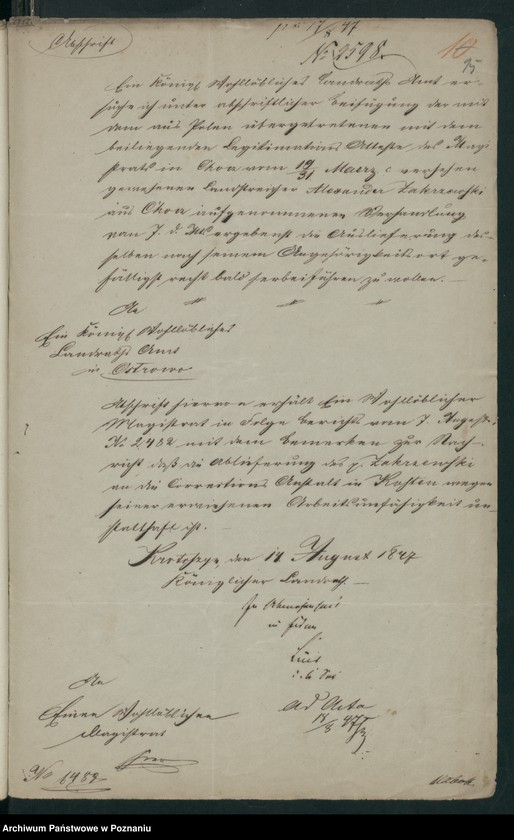 Abschrift
17/8 47
No 9598.
10
95
Ein Königl Wohllöbliches Landraths Amt er-
suche ich unter abschriftlicher Beifügung der mit
dem aus Polen übergetretenen mit dem
beiliegenden Legitimations Atteste des Magi
strats in vom 19/31 Maerz c versehen
gewesenen Landstreicher Alexander Zakrzewski
aus aufgenommenen Verhandlung
vom 7. d. Mts ergebenst die Auslieferung des-
selben nach seinem Angehörigkeitsort ge-
fälligst recht bald herbeiführen zu wollen. —
An
Ein Königl Wohllöbliches
Landraths Amt
in Ostrowo
Abschrift hiervon erhält Ein Wohllöblicher
Magistrat in Folge Berichts vom 7. August
No 2482 mit dem Bemerken zur Nach-
richt daß die Ablieferung des p. Zakrzewski
an die Corrections Anstalt in Kosten wegen
seiner erwiesenen Arbeitsunfähigkeit un-
statthaft ist. —
Krotoszyn, den 14 August 1847
Königlicher Landrath. —
An
Einen Wohllöblichen
Magistrat
hier
No 1489
ad Acta
18/8 47
Archiwum Państwowe w Poznaniu